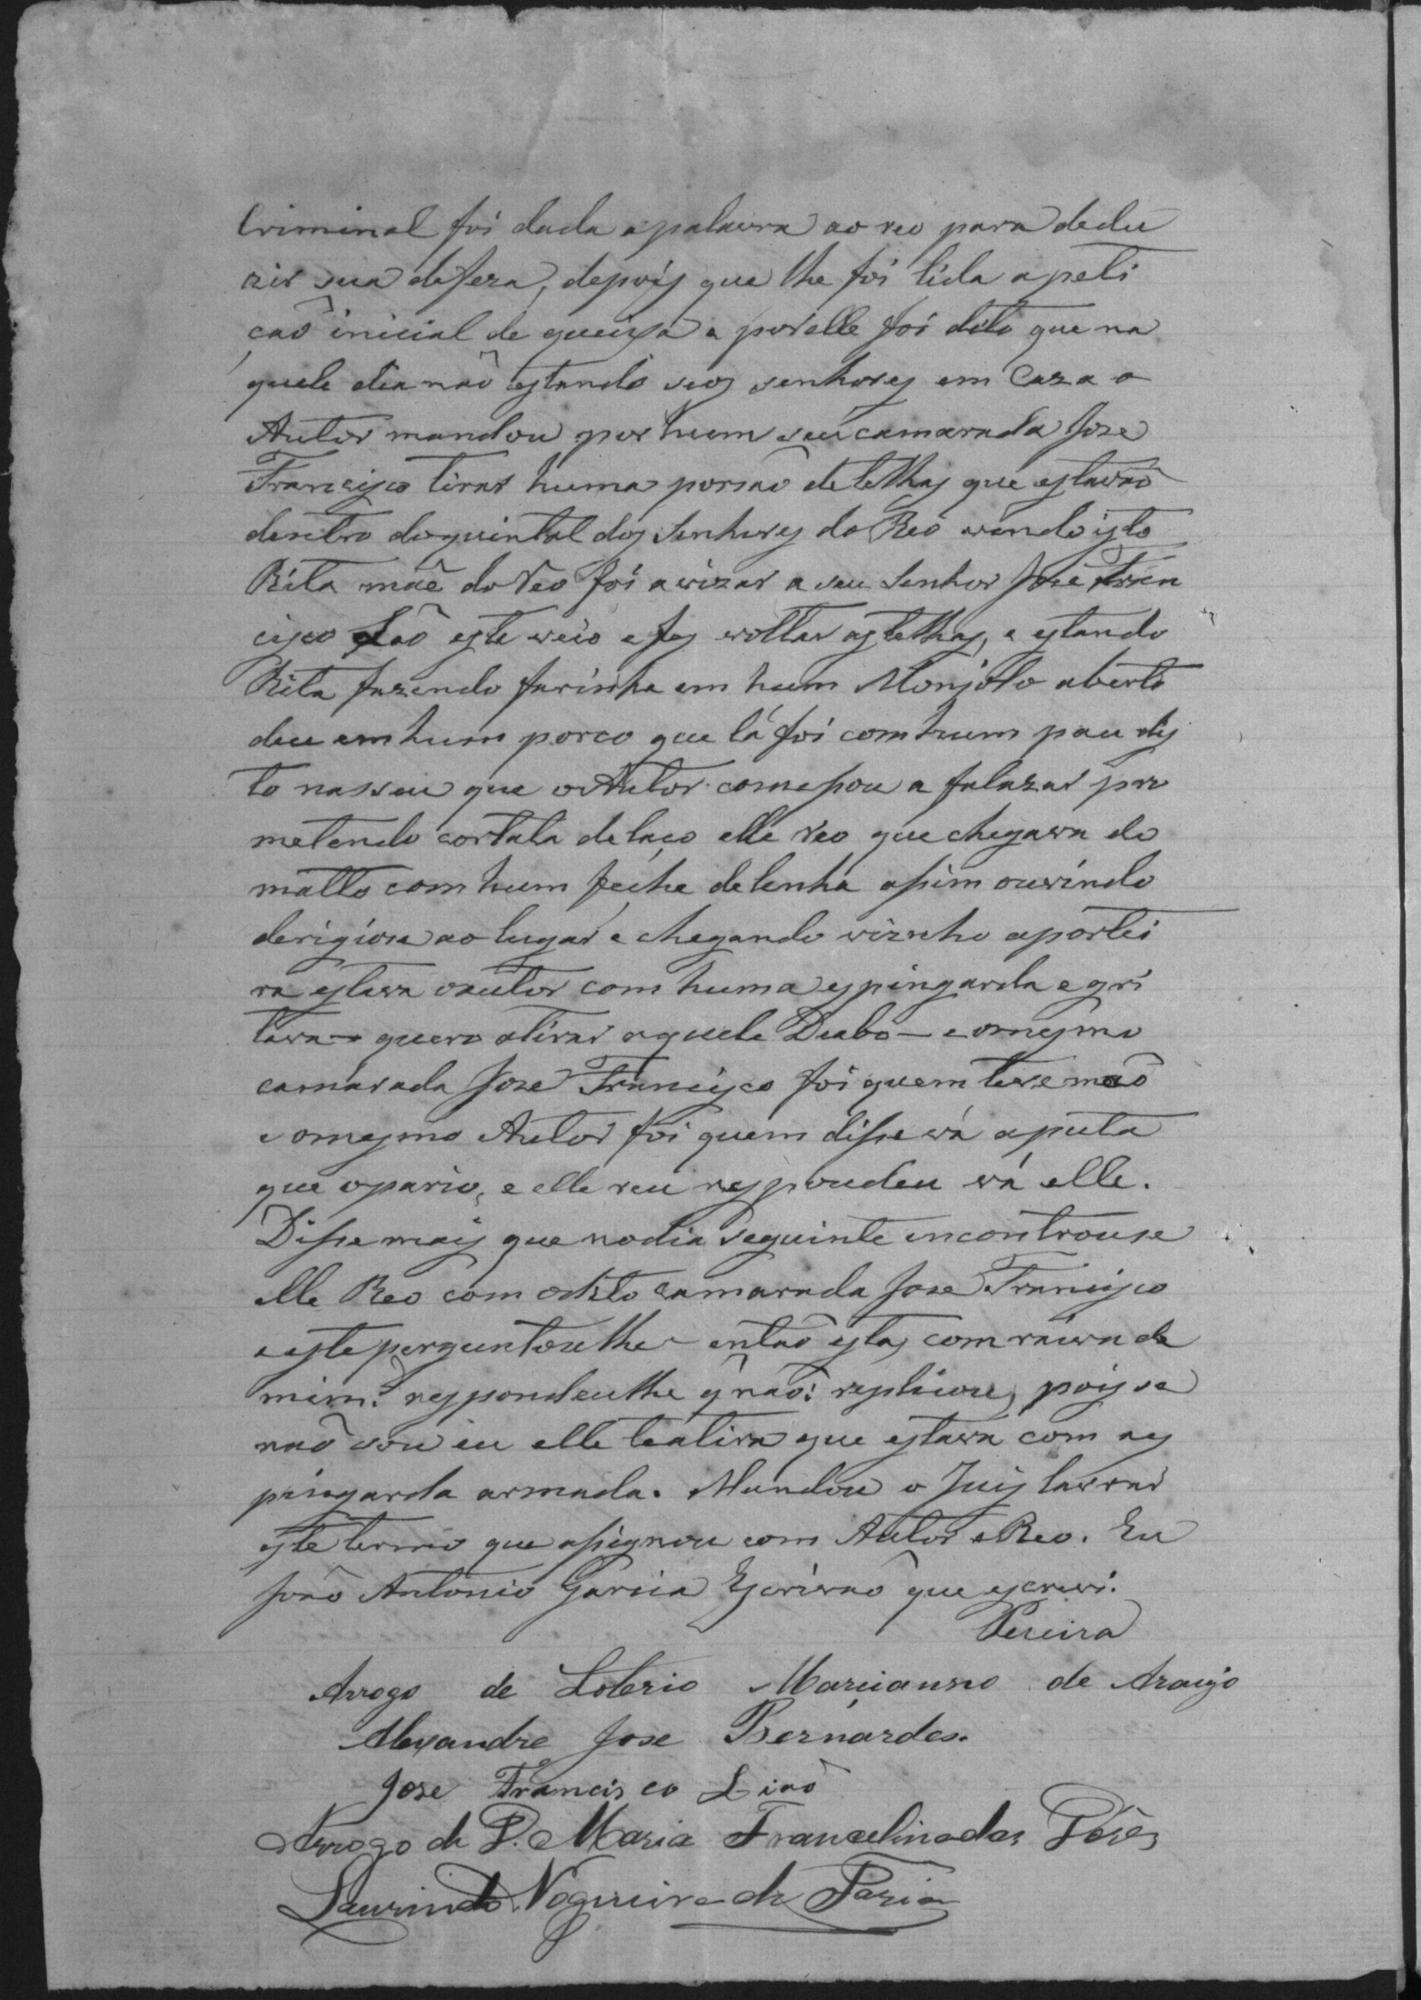 Criminal foi dada apalavra ao reo para dedu
zir sua defeza, depois que lhe foi lida apeti
ção inicial de queixa e porelle foi dito que na
quele dia não estando seos senhores em Caza o
Autor mandou por hum seu camarada Joze
Francisco tirar huma porsaõ detelhas que estavaõ
dentro doquintal dos Senhores do Reo vendo isto
Rita maẽ do Reo foi avizar a seu Senhor José Fran
cisco Leaõ este veio e fes voltar astelhas, e estando
Rita fazendo farinha em hum Monjolo aberto
deu emhum porco que lá foi comhum pau dis
to nasseu que oAutor comessou a falazar pro
metendo cortala delaço elle reo que chegava do
matto com hum feiche delenha assim ouvindo
derigiose ao lugar e chegando vizinho aportei
ra estava oautor com huma espingarda e gri
tava – quero atirar aquele Diabo – e omesmo
camarada Joze Francisco foi quem teve maõ
e omesmo Autor foi quem disse vá aputa
que opario, e elle reu respondeu vá elle.
Disse mais que nodia seguinte encontrouse
elle Reo com odito camarada Joze Francisco
e este perguntoulhe – entaõ estas com raiva de
mim? respondeulhe q̃ naõ: replicou, pois se
naõ sou eu elle teatira que estava com aes
pingarda armada. Mandou o Juis lavrar
este termo que assignou com Autor e Reo. Eu
Joaõ Antonio Garcia Escrivaõ que escrevi.
Pereira
Arrogo de Loterio Marcianno de Araujo
Alexandre Jose Bernardes.
Joze Francisco Liaõ
Arrogo de D. Maria Francelina das Dores
Laurindo Nogueira de Faria